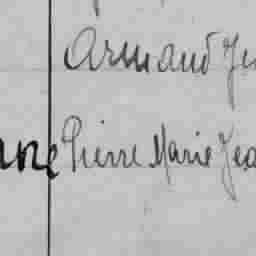 Armand
Pierre Marie Jea